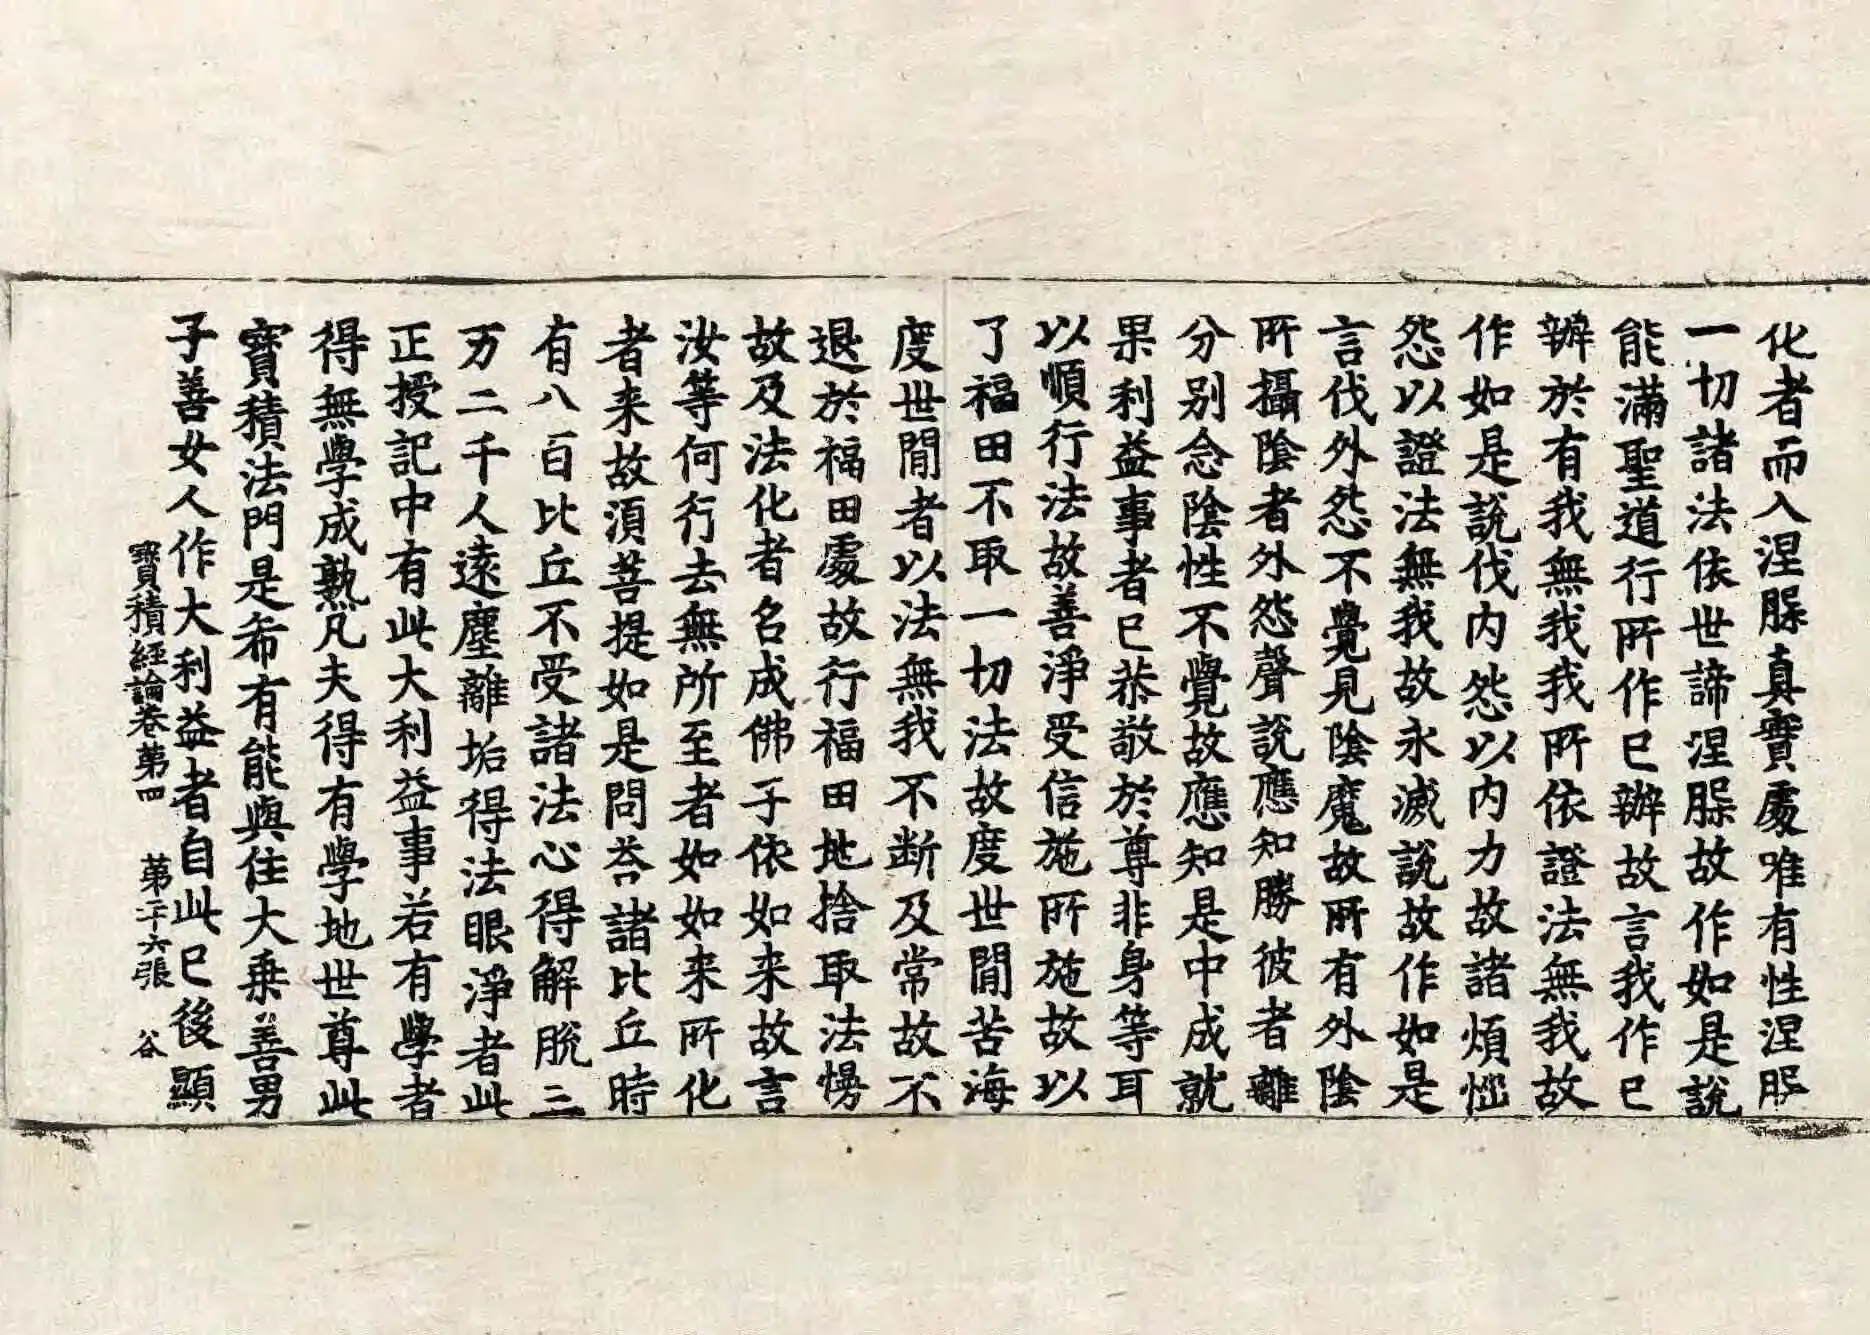 化者而入涅𦙾真實處唯有性涅𦙾
一切諸法依世諦涅𦙾故作如是說
能滿聖道行所作已辦故言我作已
辦於有我無我我所依證法無我故
作如是說伐內怨以內力故諸煩惱
怨以證法無我故永滅說故作如是
言伐外怨不覺見陰魔故所有外陰
所攝陰者外怨聲說應知勝彼者離
分別念陰性不覺故應知是中成就
果利益事者已恭敬於尊非身等耳
以順行法故善淨受信施所施故以
了福田不取一切法故度世間苦海
度世間者以法無我不断及常故不
退於福田處故行福田地捨取法慢
故及法化者名成佛子依如来故言
汝等何行去無所至者如如来所化
者来故須菩提如是問荅諸比丘時
有八百比丘不受諸法心得解脫三
万二千人遠塵離垢得法眼淨者此
正授記中有此大利益事若有學者
得無學成熟凡夫得有學地世尊此
寶積法門是希有能與住大乗善男
子善女人作大利益者自此已後顯
寶積經論卷第四 第二十六張 谷